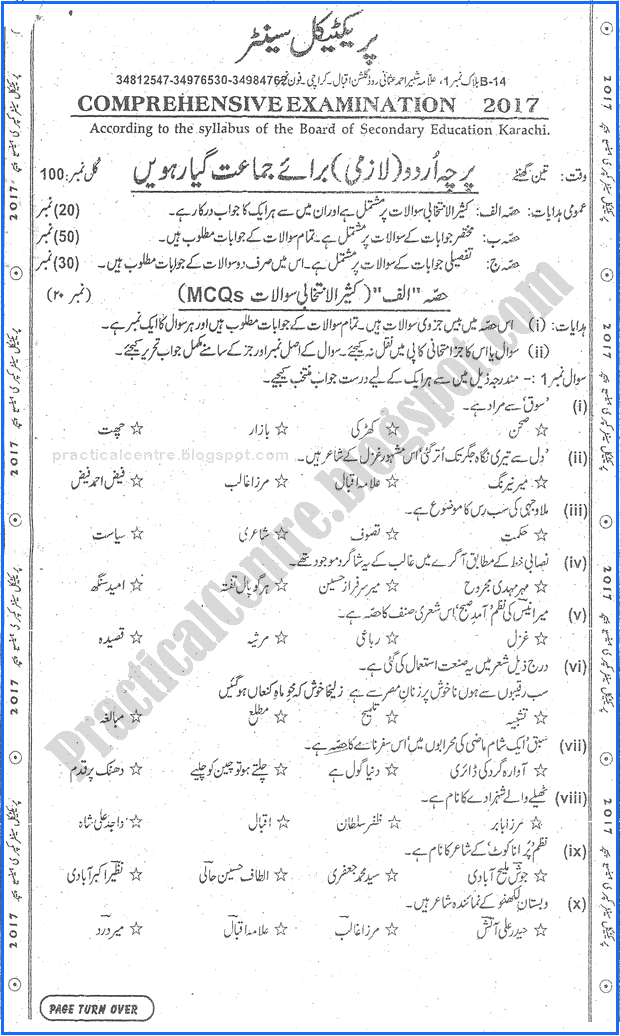 پریکٹیکل سینٹر
B-14 بلاک نمبر 1، علامہ شبیر احمد عثمانی روڈ گلشن اقبال۔ کراچی۔ فون نمبر 34812547-34976530-34984762
COMPREHENSIVE EXAMINATION 2017
According to the syllabus of the Board of Secondary Education Karachi.
وقت: تین گھنٹے پرچہ اُردو (لازمی) برائے جماعت گیارہویں کل نمبر: 100
عمومی ہدایات: حصّہ الف: کثیر الانتخابی سوالات پر مشتمل ہے اور ان میں سے ہر ایک کا جواب درکار ہے۔ (20) نمبر
حصّہ ب: مختصر جوابات کے سوالات پر مشتمل ہے۔ تمام سوالات کے جوابات مطلوب ہیں۔ (50) نمبر
حصّہ ج: تفصیلی جوابات کے سوالات پر مشتمل ہے۔ اس میں صرف دو سوالات کے جوابات مطلوب ہیں۔ (30) نمبر
حصّہ "الف" (کثیر الانتخابی سوالات MCQs) (نمبر ۲۰)
ہدایات: (i) اس حصّہ میں بیس جزوی سوالات ہیں۔ تمام سوالات کے جوابات مطلوب ہیں اور ہر سوال کا ایک نمبر ہے۔
(ii) سوال یا اس کا جز امتحانی کاپی میں نقل نہ کیجیے۔ سوال کے اصل نمبر اور جز کے سامنے مکمل جواب تحریر کیجیے۔
سوال نمبر 1 :- مندرجہ ذیل میں سے ہر ایک کے لیے درست جواب منتخب کیجیے۔
(i) 'سوق' سے مراد ہے۔
☆ صحن ☆ کھڑکی ☆ بازار ☆ چھت
(ii) 'دل سے تیری نگاہ جگر تک اُتر گئی' اس مشہور غزل کے شاعر ہیں۔
☆ میر نیرنگ ☆ علامہ اقبال ☆ مرزا غالب ☆ فیض احمد فیض
(iii) ملا وجہی کی سب رس کا موضوع ہے۔
☆ حکمت ☆ تصوف ☆ شاعری ☆ سیاست
(iv) نصابی خط کے مطابق آگرے میں غالب کے یہ شاگرد موجود تھے۔
☆ مہر مہدی مجروح ☆ میر سرفراز حسین ☆ ہر گوپال تفتہ ☆ امید سنگھ
(v) میر انیس کی نظم 'آمدِ صبح' اس شعری صنف کا حصّہ ہے۔
☆ غزل ☆ رباعی ☆ مرثیہ ☆ قصیدہ
(vi) درج ذیل شعر میں یہ صنعت استعمال کی گئی ہے۔
سب رقیبوں سے ہوں ناخوش پر زنانِ مصر سے ہے زلیخا خوش کہ محوِ ماہِ کنعاں ہو گئیں
☆ تشبیہ ☆ تلمیح ☆ مطلع ☆ مبالغہ
(vii) سبق 'ایک شام ماضی کی محرابوں میں' اس سفرنامے کا حصّہ ہے۔
☆ آوارہ گرد کی ڈائری ☆ دنیا گول ہے ☆ چلتے ہو تو چین کو چلیے ☆ دھنک پر قدم
(viii) ٹھیلے والے شہزادے کا نام ہے۔
☆ مرزا بابر ☆ ظفر سلطان ☆ اقبال ☆ واجد علی شاہ
(ix) نظم 'پُرانا کوٹ' کے شاعر کا نام ہے۔
☆ جوش ملیح آبادی ☆ سید محمد جعفری ☆ الطاف حسین حالی ☆ نظیر اکبر آبادی
(x) دبستان لکھنؤ کے نمائندہ شاعر ہیں۔
☆ حیدر علی آتش ☆ مرزا غالب ☆ علامہ اقبال ☆ میر درد
PAGE TURN OVER
practicalcentre.blogspot.com
Practicalcentre.blogspot.com
2017
2017
2017
2017
2017
2017
2017
2017